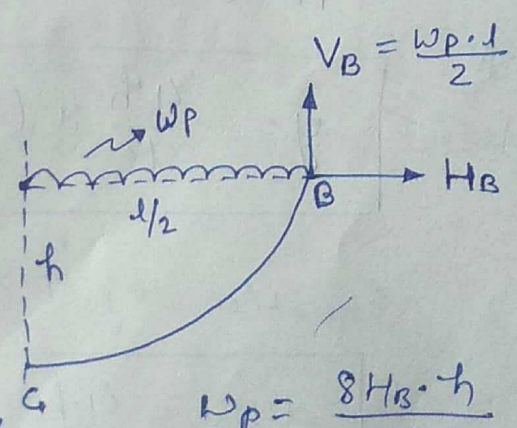 V_B = wp·l / 2
wp
H_B
B
l/2
h
C
wp = 8H_B·h